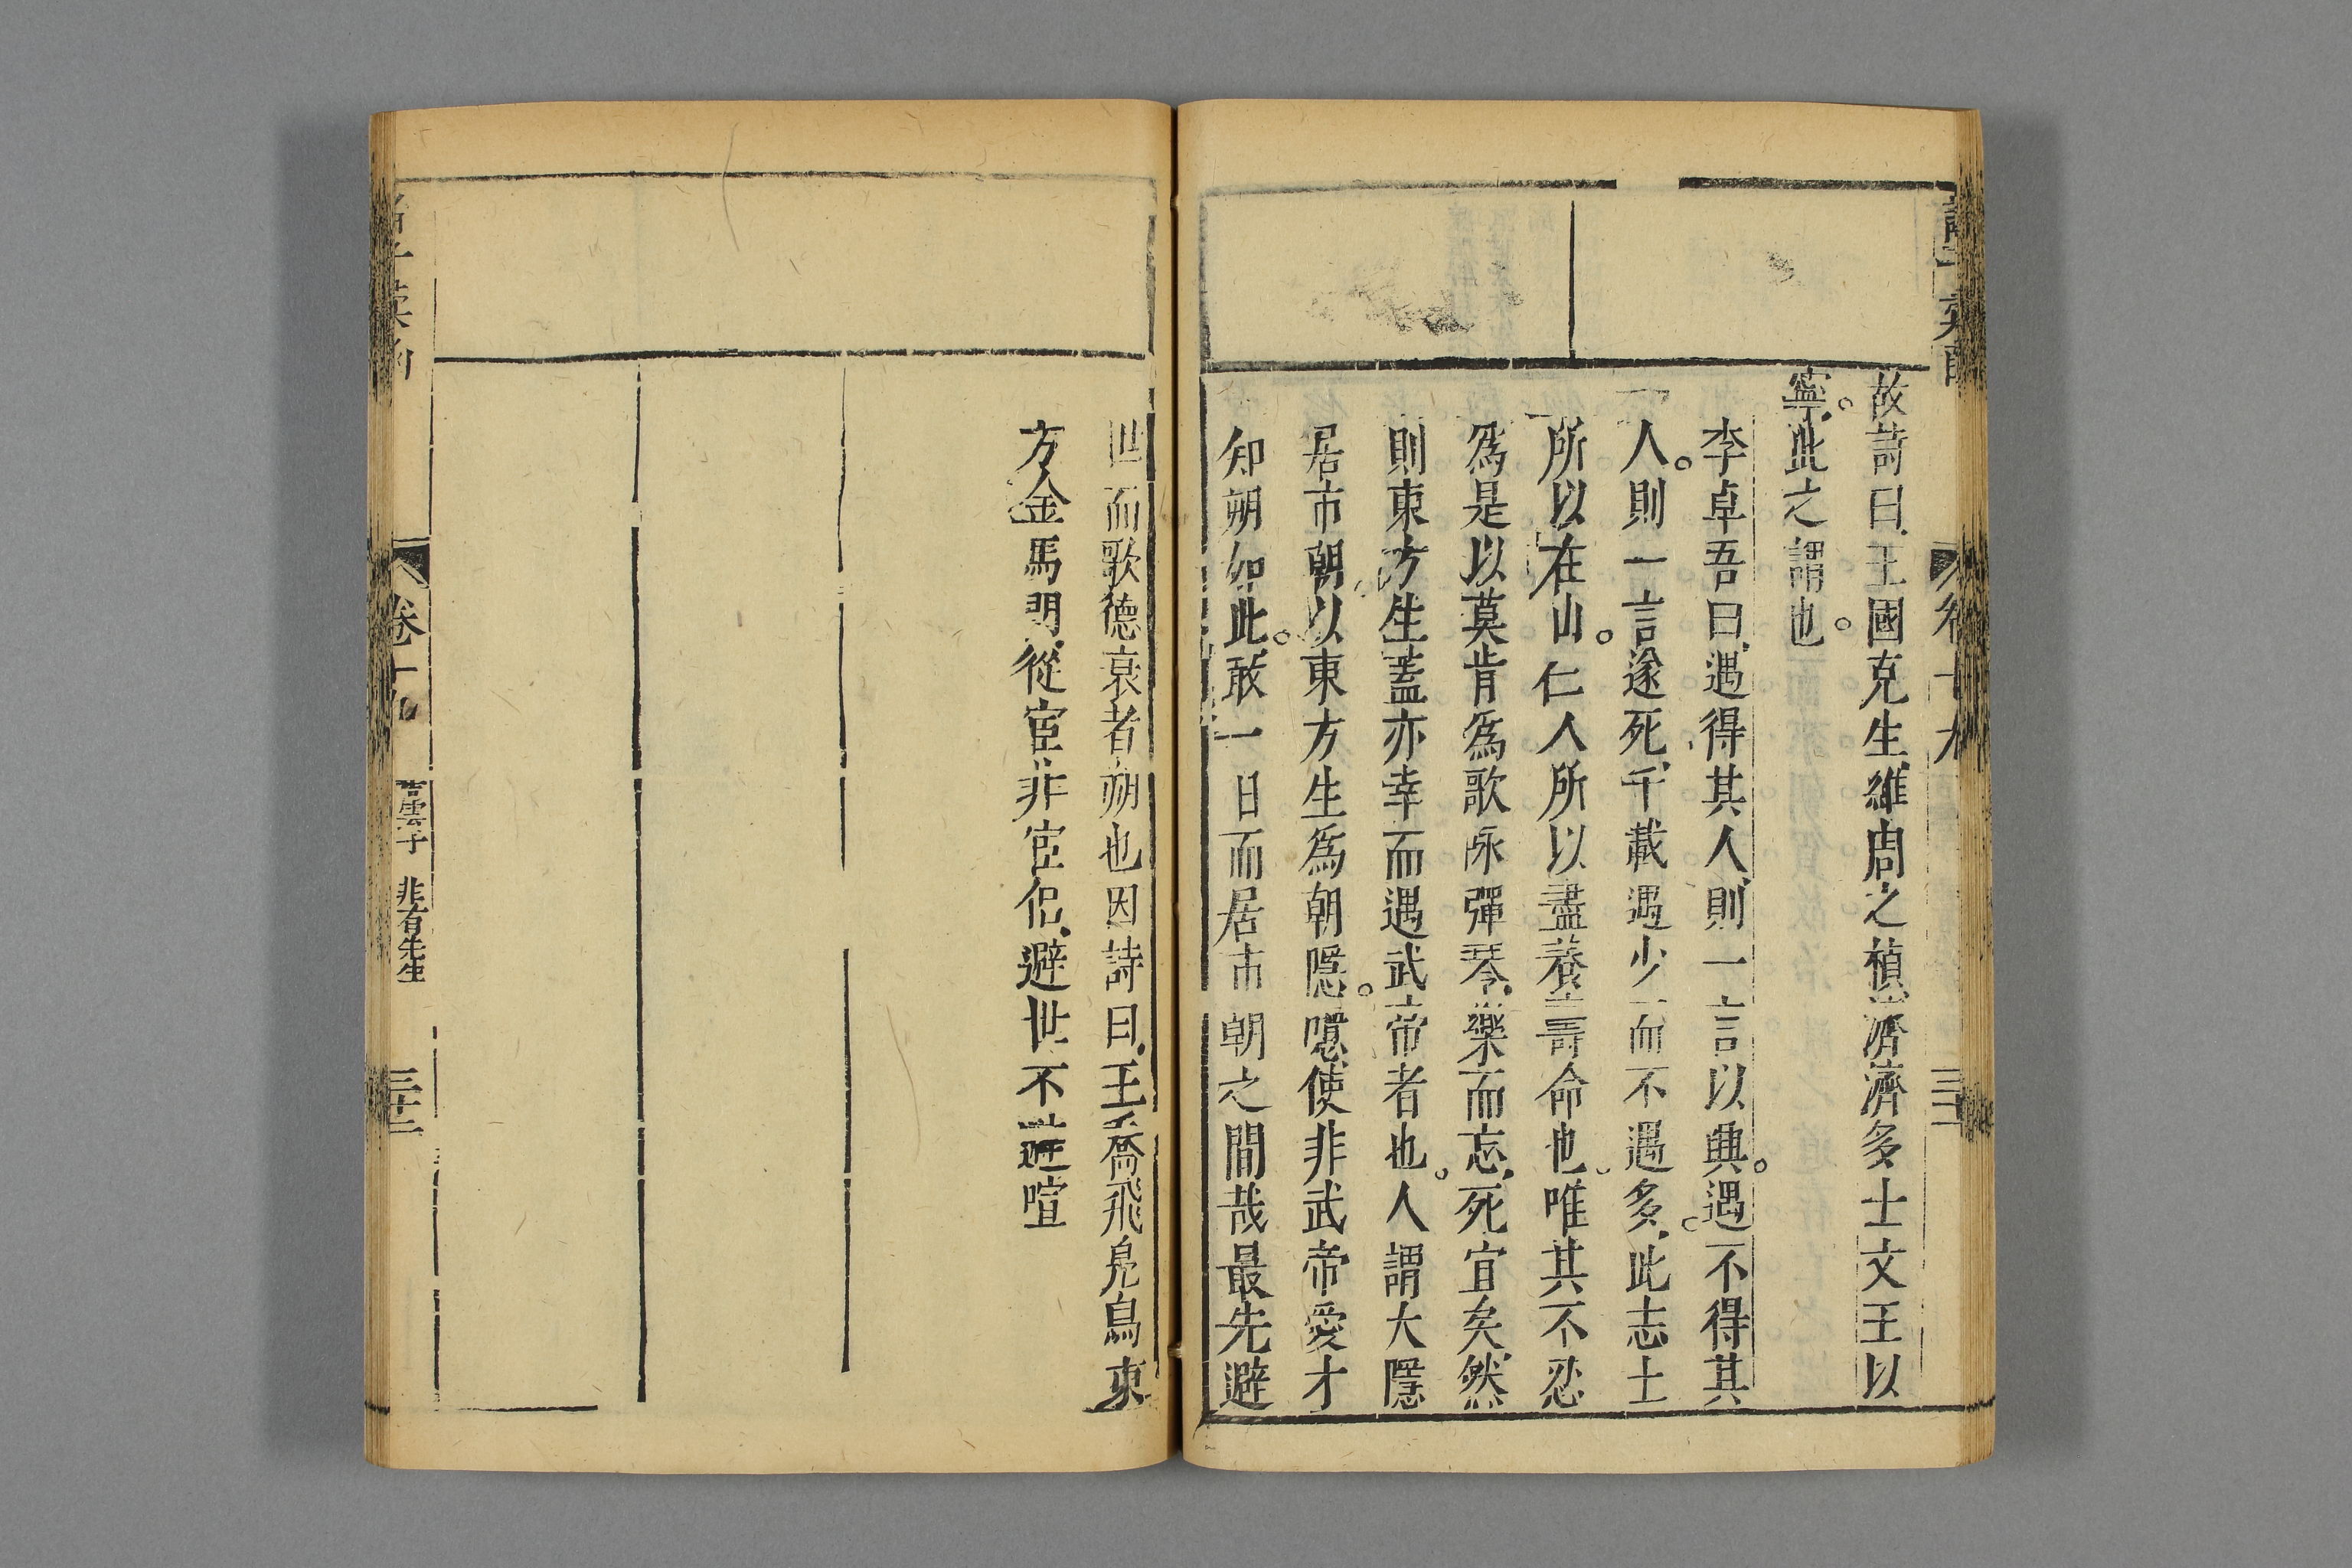 故詩曰王國克生維周之楨濟濟多士文王以
寧此之謂也
李卓吾曰遇得其人則一言以興遇不得其
人則一言遂死千載遇少而不遇多此志士
所以在山仁人所以盡養壽命也唯其不忍
爲是以莫肯爲歌咏彈琴樂而忘死宜矣然
則東方生蓋亦幸而遇武帝者也人謂大隱
居市朝以東方生爲朝隱噫使非武帝愛才
知朔如此敢一日而居市朝之間哉最先避
世而歌德衰者朔也因詩曰王喬飛鳧鳥東
方金馬門從宦非宦侶避世不避喧
卷十九
雲子 非有先生
三十二